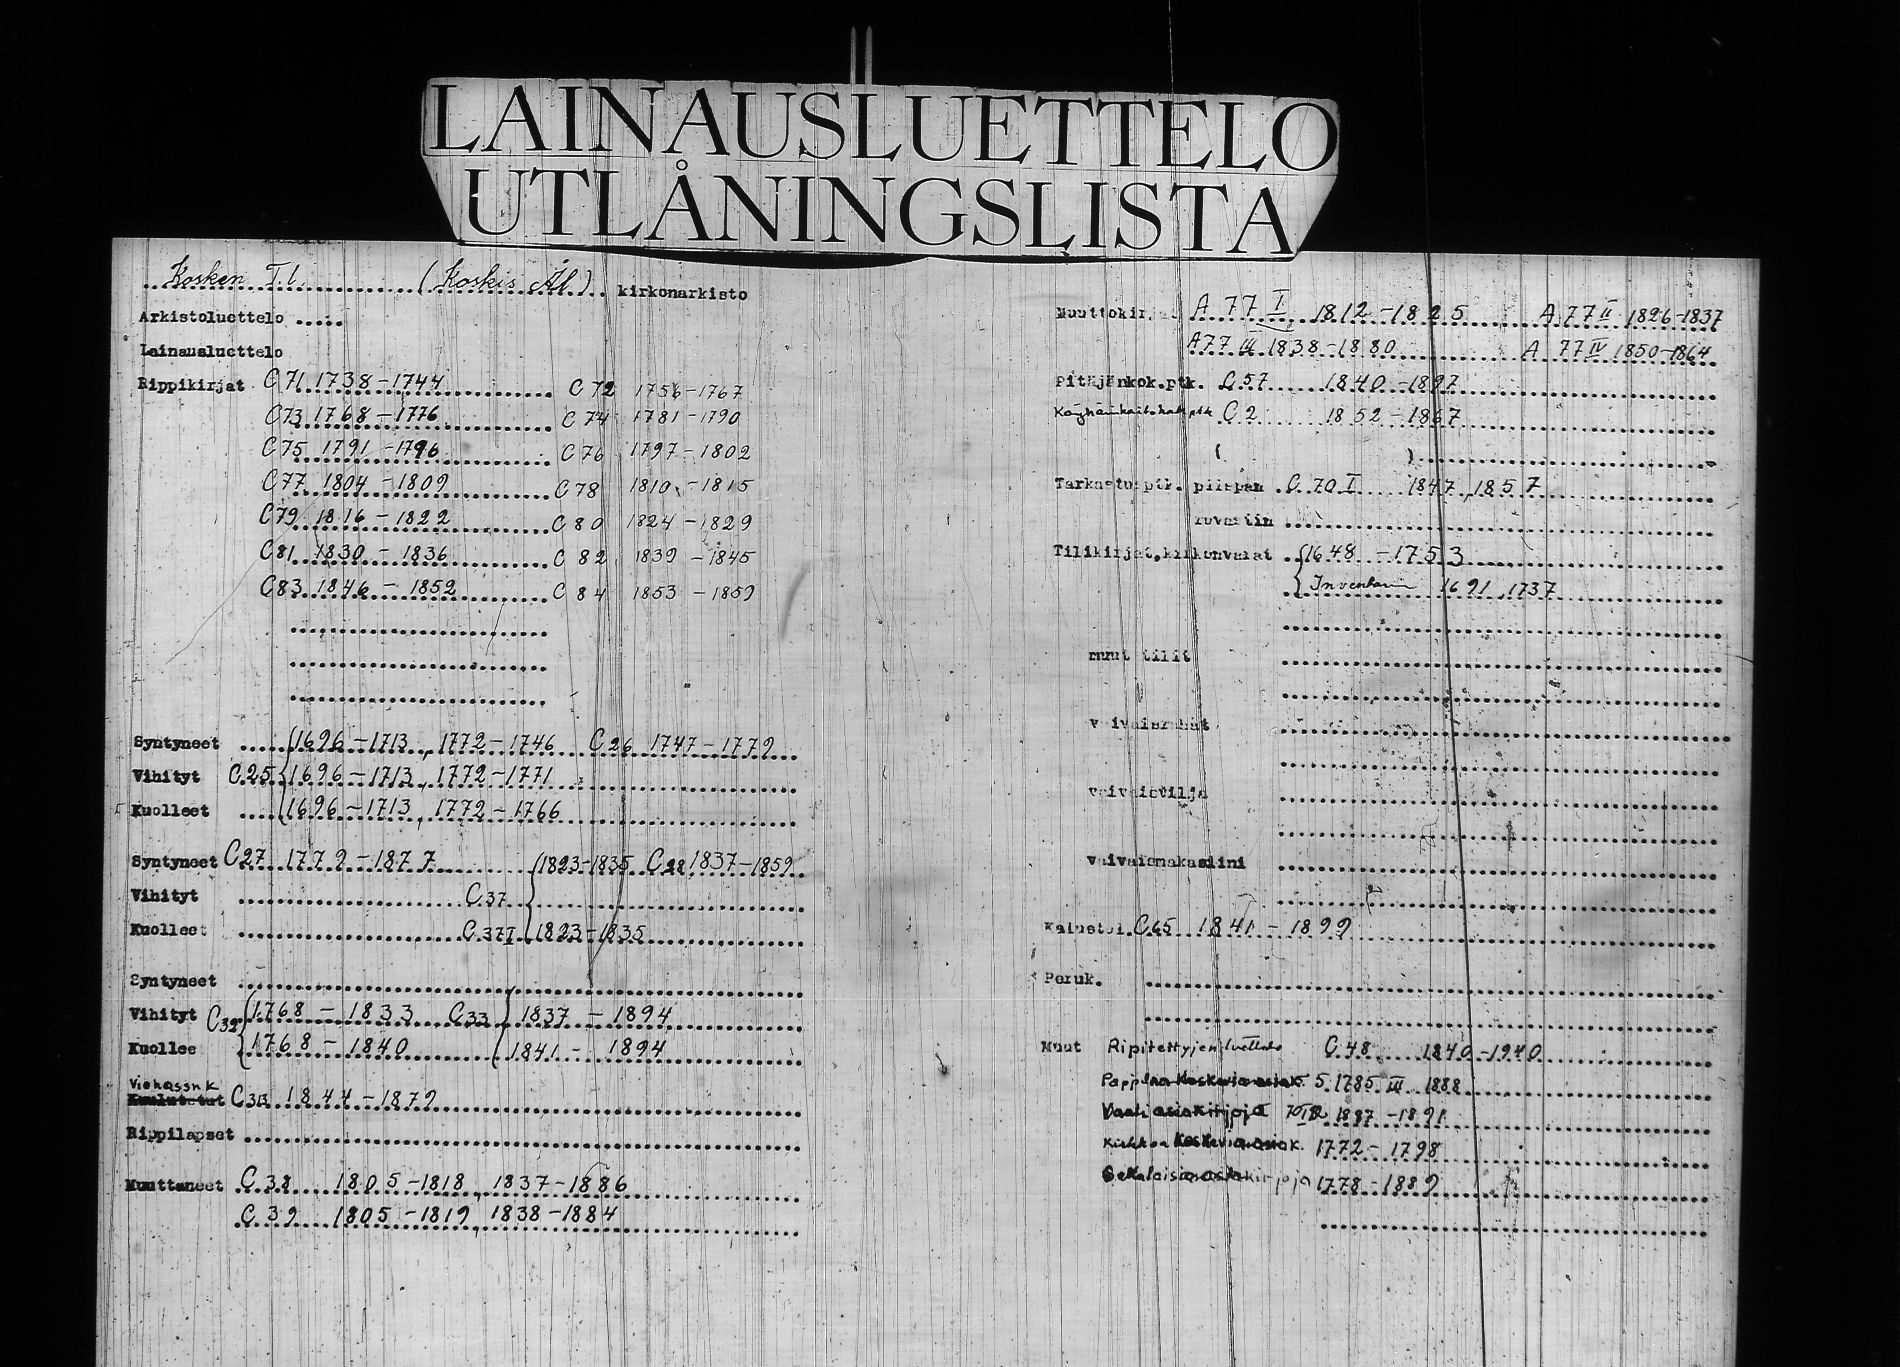 LAINAUSLUETTELO
UTLÅNINGSLISTA
Kosken T.l. (Koskis Ål) kirkonarkisto
Arkistoluettelo
Lainausluettelo
Rippikirjat C 71 1738-1744 C 72 1756-1767
C 73 1768-1776 C 74 1781-1790
C 75 1791-1796 C 76 1797-1802
C 77 1804-1809 C 78 1810-1815
C 79 1816-1822 C 80 1824-1829
C 81 1830-1836 C 82 1839-1845
C 83 1846-1852 C 84 1853-1859
Syntyneet 1696-1713, 1772-1746 C 26 1747-1779
Vihityt C 25 1696-1713, 1772-1771
Kuolleet 1696-1713, 1772-1766
Syntyneet C 27 1779-1877 1823-1835 C 28 1837-1859
Vihityt C 37
Kuolleet C 37 I 1823-1835
Syntyneet
Vihityt C 32 1768-1833 C 33 1837-1894
Kuollee 1768-1840 1841-1894
Kuulutetut C 313 1844-1879
Rippilapset
Muuttaneet C 38 1805-1818, 1837-1886
C 39 1805-1819, 1838-1884
Muuttokirjat A 77 I 1812-1825 A 77 II 1826-1837
A 77 III 1838-1880 A 77 IV 1850-1864
Pitäjänkok.ptk. C 57 1840-1897
C 2 1852-1867
( )
Tarkastu: ptk. piispan C 70 I 1847, 1857
rovastin
Tilikirjat, kirkonvarat 1648-1753
1691, 1737
muut tilit
vaivaisrahat
vaivaisvilja
vaivaismakasiini
Kalustol. C 65 1841-1899
Peruk.
Muut Ripitettyjen luettelo C 48 1840-1940
Pappilaa Koskevia asiak. 5. 1785 III 1888
Vaali asiakirjoja 1887-1891
Kirkkoa Koskevia asiak. 1772-1798
Sekalaisia asiakirjoja 1778-1889